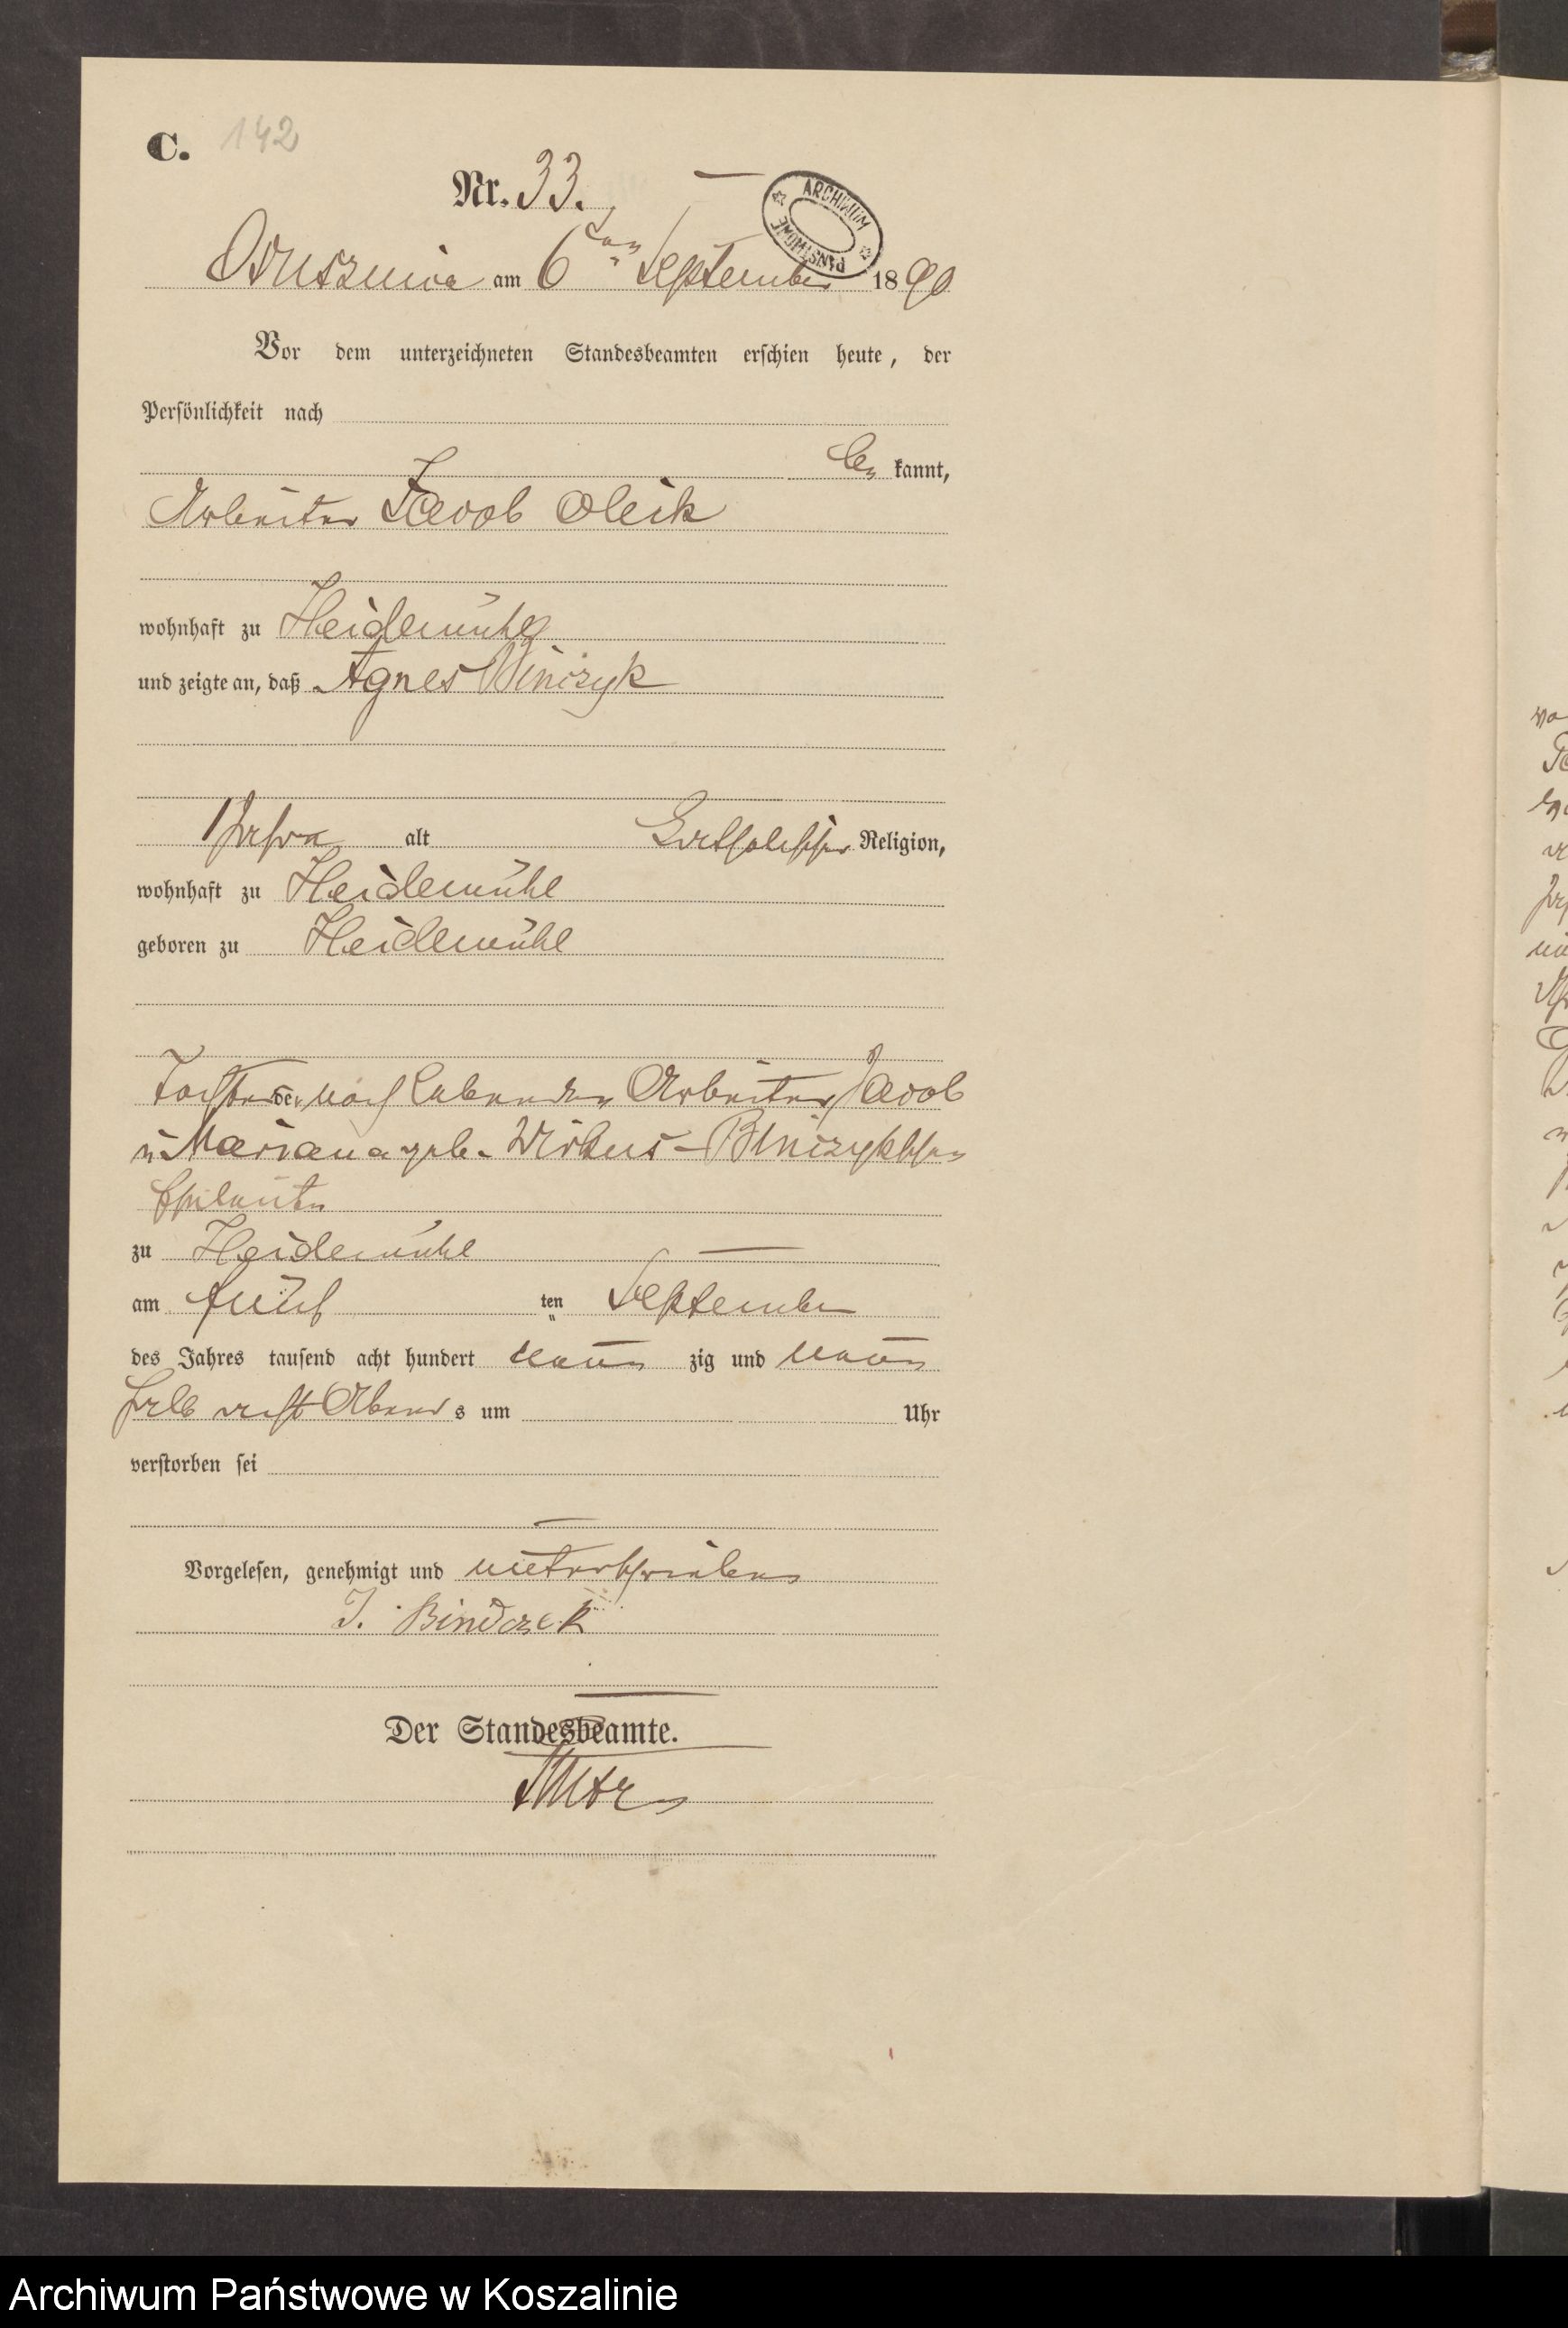 C. 142
Nr. 33.
ARCHIWUM PAŃSTWOWE
am 6ten September 1890
Vor dem unterzeichneten Standesbeamten erschien heute, der
Persönlichkeit nach
be kannt,
Arbeiter Jacob Oleik
wohnhaft zu Heidemühl
und zeigte an, daß Agnes Binczyk
1 Jahr alt katholischer Religion,
wohnhaft zu Heidemühl
geboren zu Heidemühl
Tochter der noch lebenden Arbeiter Jacob
u Mariana geb. Wirkus - Binczykschen
Eheleute
zu Heidemühl
am fünf ten September
des Jahres tausend acht hundert neun zig und
halb acht Abend s um Uhr
verstorben sei
Vorgelesen, genehmigt und unterschrieben
J. Bindczek
Der Standesbeamte.
Archiwum Państwowe w Koszalinie